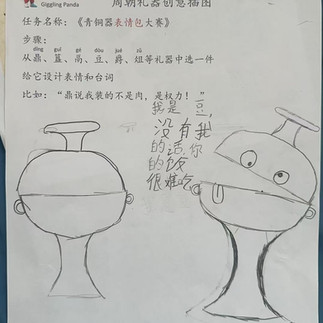 Giggling Panda
周朝礼器创意插图
任务名称：《青铜器表情包大赛》
步骤：
dǐng guǐ gé dòu jué zǔ
从鼎、簋、鬲、豆、爵、俎等礼器中选一件
给它设计表情和台词
比如：“鼎说我装的不是肉，是权力！”
我是豆，
没有我
的话，你
的饭
很难吃